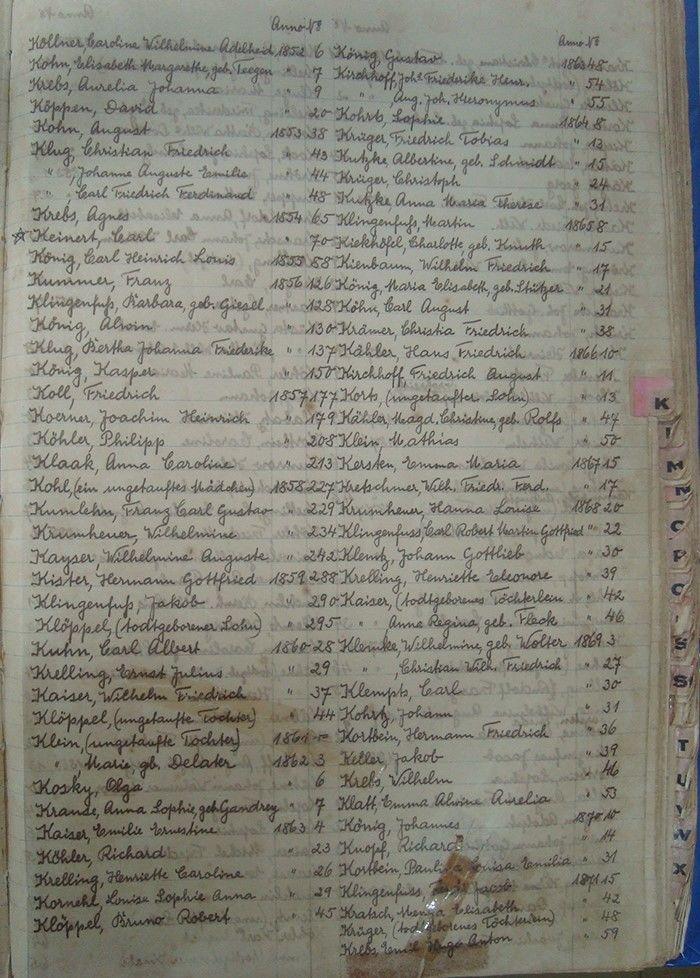 Anno No
Köllner, Caroline Wilhelmine Adelheid 1852 6
Kohn, Elisabeth Margarethe, geb. Teegen " 7
Krebs, Aurelia Johanna " 9
Köppen, David " 20
Kohn, August 1853 38
Klug, Christian Friedrich " 43
" , Johanne Auguste Emilie " 44
" , Carl Friedrich Ferdinand " 48
Krebs, Agnes 1854 65
☆ Keinert, Carl " 70
König, Carl Heinrich Louis 1855 88
Kummer, Franz 1856 126
Klingenfuß, Barbara, geb. Giesel " 128
König, Alwin " 130
Klug, Bertha Johanna Friederike " 137
König, Kasper " 150
Koll, Friedrich 1857 177
Koerner, Joachim Heinrich " 179
Köhler, Philipp " 208
Klaak, Anna Caroline " 213
Kohl, (ein ungetauftes Mädchen) 1858 227
Kumlehn, Franz Carl Gustav " 229
Krumheuer, Wilhelmine " 234
Kayser Wilhelmine Auguste " 242
Kister, Hermann Gottfried 1859 288
Klingenfuß, Jakob " 290
Klöppel, (todtgeborener Sohn) " 295
Kuhn, Carl Albert 1860 28
Krelling, Ernst Julius " 29
Kaiser, Wilhelm Friedrich " 37
Klöppel, (ungetaufte Tochter) " 44
Klein, (ungetaufte Tochter) 1861 -
" Marie, gb. Delater 1862 3
Kosky, Olga " 6
Krause, Anna Sophie, geb. Gandrey " 7
Kaiser, Emilie Ernestine 1863 4
Köhler, Richard " 23
Krelling, Henriette Caroline " 26
Kornehl, Louise Sophie Anna " 29
Klöppel, Bruno Robert " 45
Anno No
König, Gustav 1863 48
Kirchhoff, Johs Friederike Henr. " 54
" Aug. Joh. Hieronymus " 55
Kohrts, Sophie 1864 8
Krüger, Friedrich Tobias " 13
Kutzke Albertine, geb. Schmidt " 15
Krüger, Christoph " 24
Kutzke Anna Maria Therese " 31
Klingenfuß, Martin 1865 8
Kiekhöfel, Charlotte geb. Knuth " 15
Kienbaum, Wilhelm Friedrich " 17
König, Maria Elisabeth, geb. Stützer " 21
Köhn, Carl August " 31
Krämer, Christia Friedrich " 38
Kähler, Hans Friedrich 1866 10
Kirchhoff Friedrich August " 11
Korts, (ungetaufter Sohn) " 13
Kähler, Magd. Christine, geb. Rolfs " 44
Klein, Mathias " 50
Kersten, Emma Maria 1867 15
Kretschmer, Wilh. Friedr. Ferd. " 17
Krumheuer, Hanna Louise 1868 20
Klingenfuss, Carl Robert Martin Gottfried " 22
Klentz, Johann Gottlieb " 30
Krelling, Henriette Eleonore " 39
Kaiser, (todtgeborenes Töchterlein) " 42
" Anne Regina, geb. Fleck " 46
Klemcke, Wilhelmine, geb. Wolter 1869 3
" , Christian Wilh. Friedrich " 27
Klempts, Carl " 30
Kohrtz, Johann " 31
Kortbein, Hermann Friedrich " 36
Keller, Jakob " 39
Krebs, Wilhelm " 46
Klatt, Emma Alwine Aurelia " 53
König, Johannes 1870 10
Knopf, Richard " 14
Kortbein, Louisa Emilia " 31
Klingenfuss, Jacob 1871 15
Kratsch, Elisabeth " 42
Krüger, (todtgeborenes Töchterlein) " 48
Krebs, Emil Hugo Anton " 59
K
L
M
N
O
P
Q
S
S
T
U
V
X